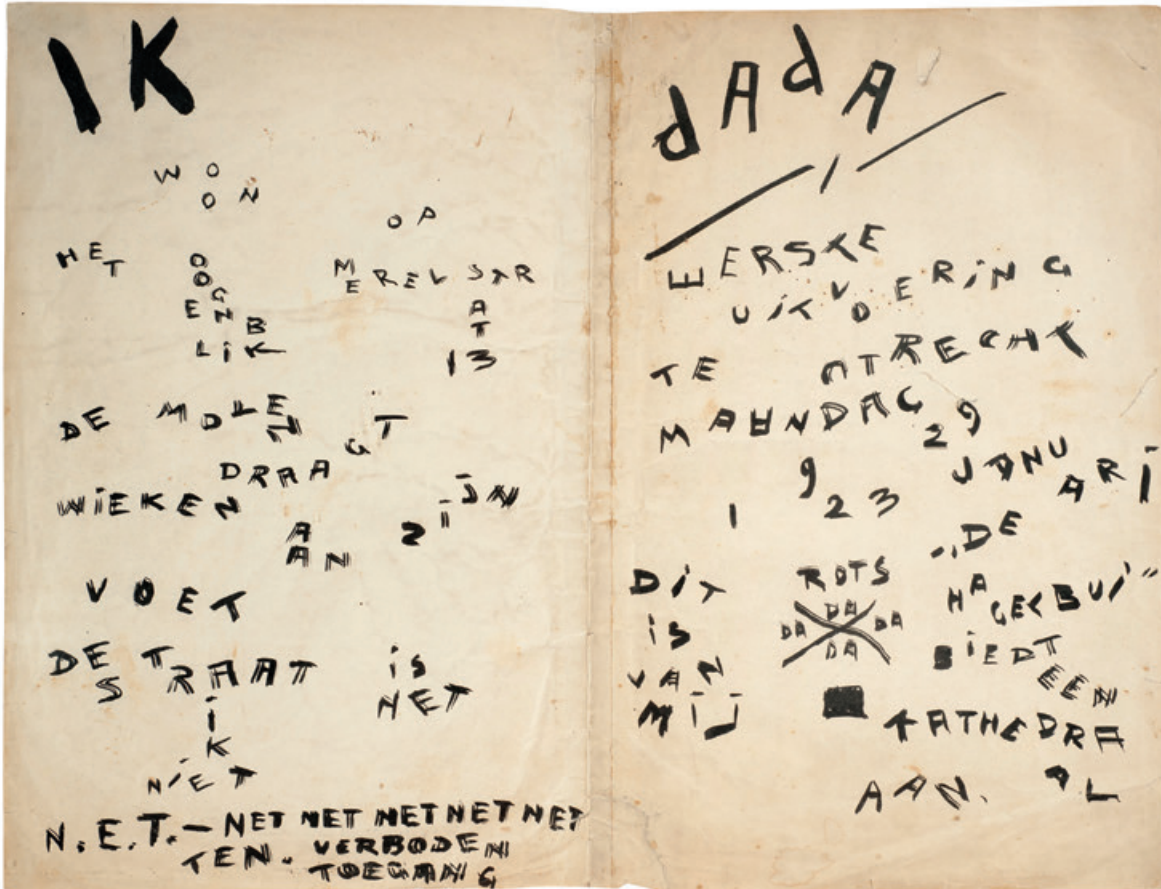 IK
WOON OP
HET OOGENBLIK MERELSTRAT 13
DE MOLEN DRAAGT
WIEKEN AAN ZIJN
VOET
DE STRAAT IS
NET
IK
NIET
N.E.T.—NET NET NETNETNET
TEN. VERBODEN
TOEGANG
dAdA
EERSTE
UITVOERING
TE UTRECHT
MAANDAG 29
JANUARI
1923
DIT
IS
VAN
MIJ
ROTS
DA
DA DA
DA
„DE
HAGELBUI"
BIEDT
EEN
KATHEDRAAL
AAN.